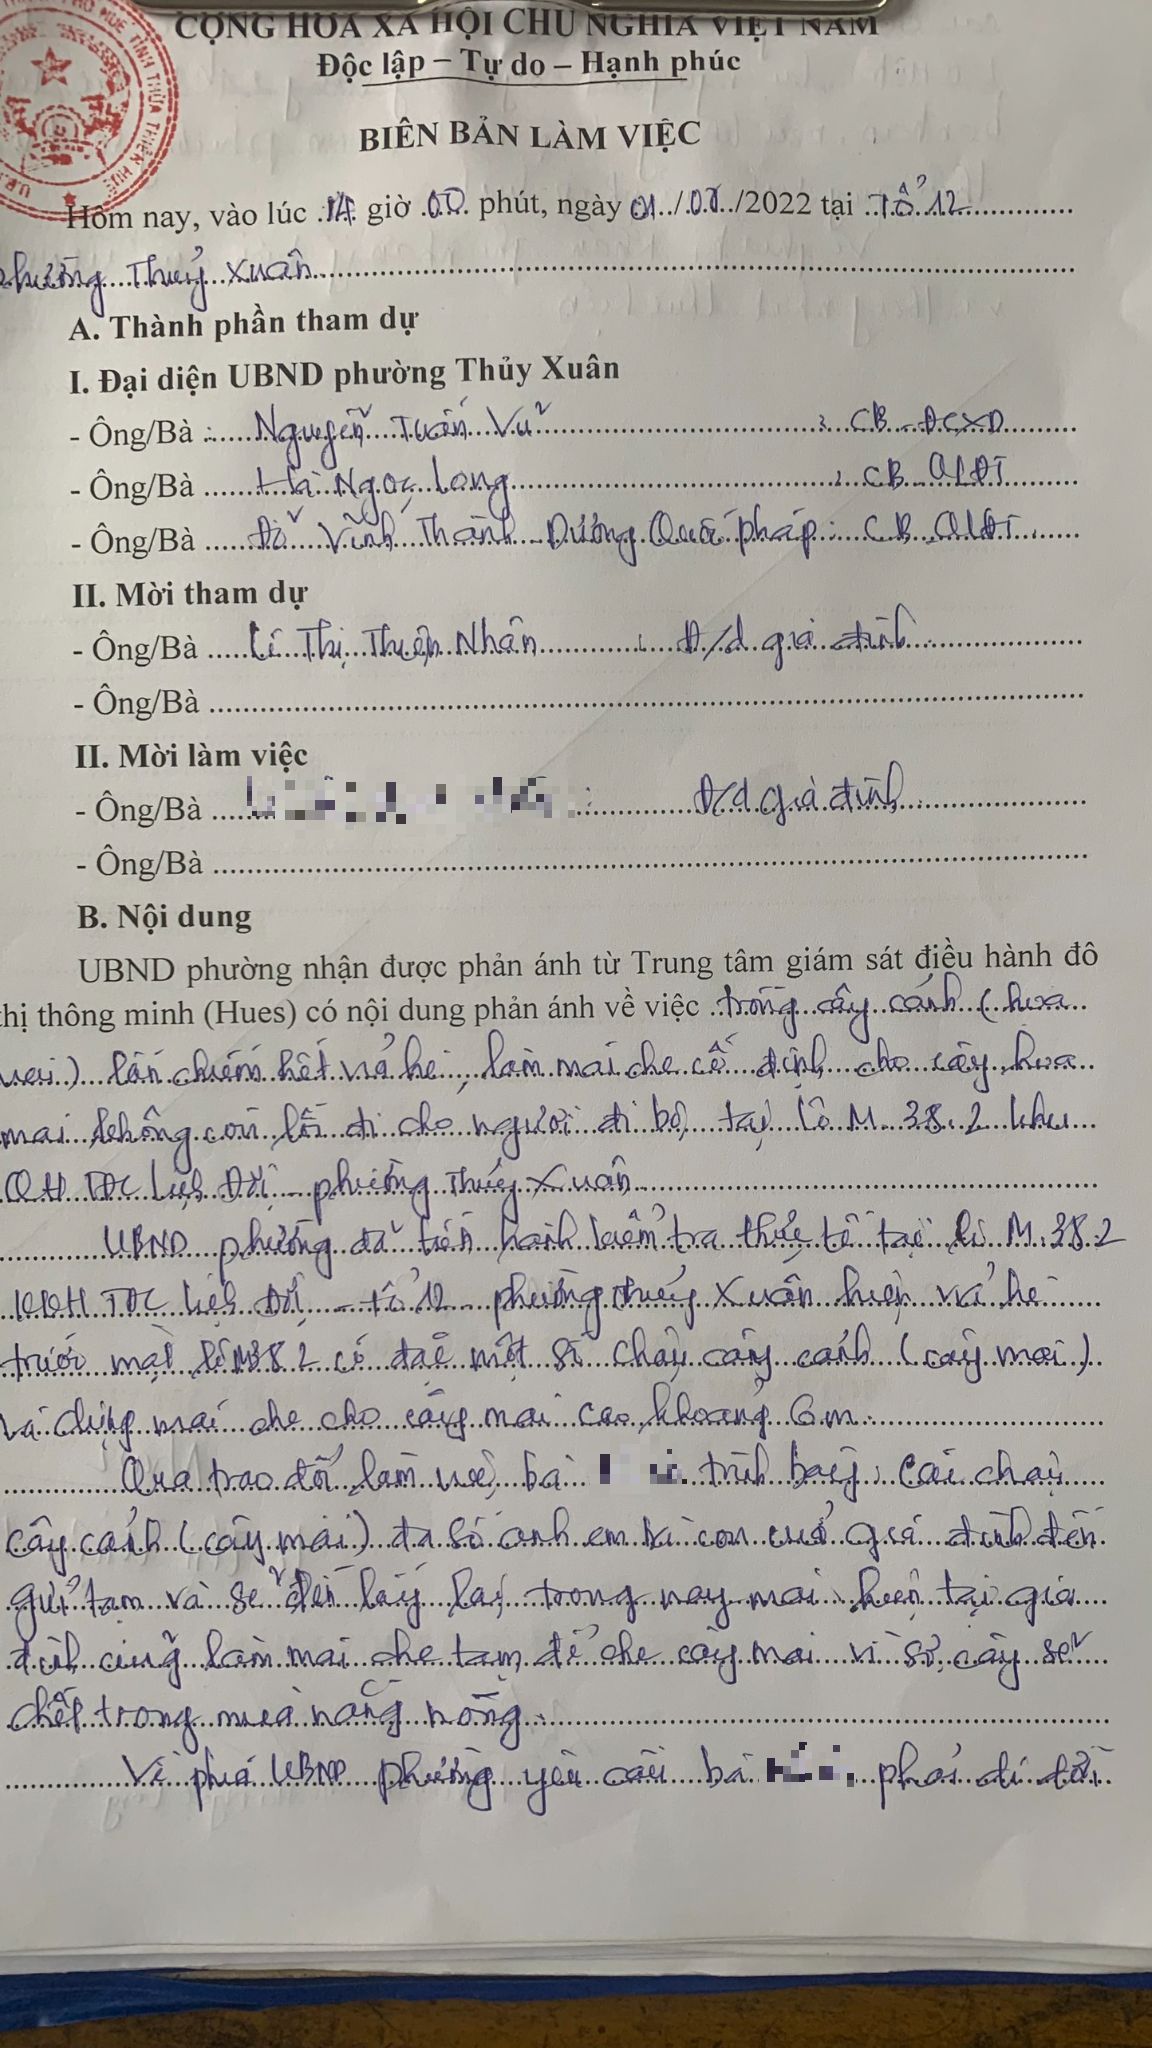 CỘNG HOÀ XÃ HỘI CHỦ NGHĨA VIỆT NAM
Độc lập – Tự do – Hạnh phúc
BIÊN BẢN LÀM VIỆC
Hôm nay, vào lúc 14 giờ 00 phút, ngày 01/07/2022 tại Tổ 12
phường Thuỷ Xuân
A. Thành phần tham dự
I. Đại diện UBND phường Thủy Xuân
- Ông/Bà : Nguyễn Tuấn Vũ : CB - ĐCXD
- Ông/Bà Hà Ngọc Long : CB QLĐT
- Ông/Bà Đỗ Vĩnh Thành - Dương Quốc Pháp : CB QLĐT
II. Mời tham dự
- Ông/Bà Lê Thị Thiện Nhân : Đ/d gia đình
- Ông/Bà
II. Mời làm việc
- Ông/Bà : Đ/d gia đình
- Ông/Bà
B. Nội dung
UBND phường nhận được phản ánh từ Trung tâm giám sát điều hành đô
thị thông minh (Hues) có nội dung phản ánh về việc trồng cây cảnh (hoa
mai) lấn chiếm hết vỉa hè, làm mái che cố định cho cây hoa
mai không còn lối đi cho người đi bộ, tại lô M 38.2 khu
QH TĐC Lịch Đợi - phường Thuỷ Xuân
UBND phường đã tiến hành kiểm tra thực tế tại lô M 38.2
KQH TĐC Lịch Đợi - tổ 12 phường Thuỷ Xuân hiện vỉa hè
trước mặt lô M38.2 có đặt một số chậu cây cảnh (cây mai)
và dựng mái che cho cây mai cao khoảng 6m
Qua trao đổi, làm việc bà trình bày : Các chậu
cây cảnh (cây mai) đa số anh em bà con của gia đình đến
gửi tạm và sẽ đến lấy lại trong nay mai, hiện tại gia
đình cũng làm mái che tạm để che cây mai vì sợ cây sẽ
chết trong mùa nắng nóng.
Về phía UBND phường yêu cầu bà phải di dời